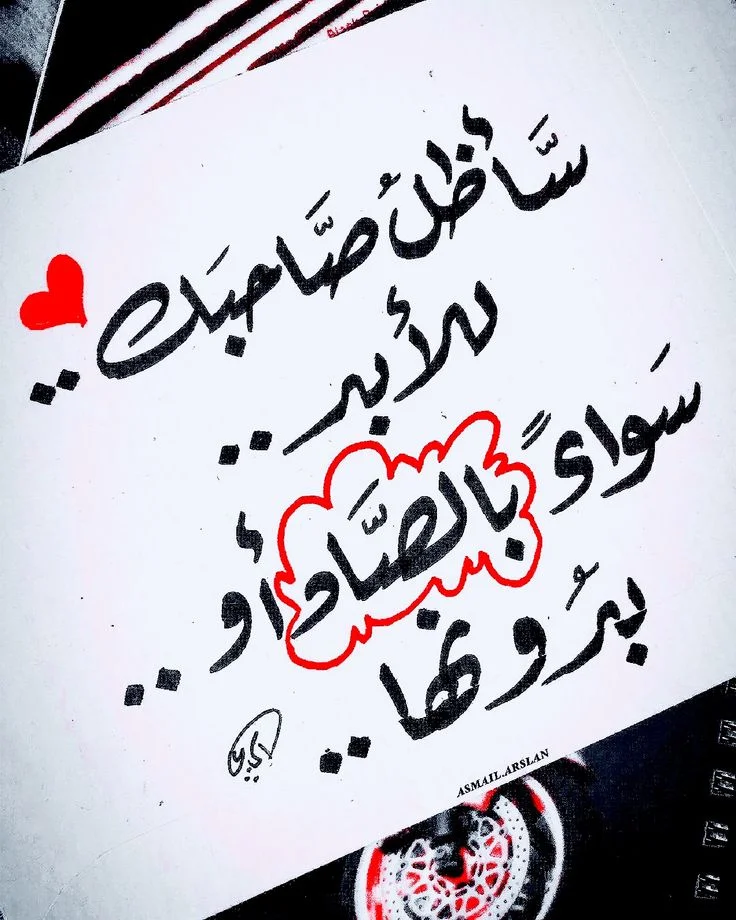 سَّأظلُ صَّاحبَك ..
للأبد ..
سَواءً بالصَّاد أو ..
بدُونها ..
ASMAIL.ARSLAN